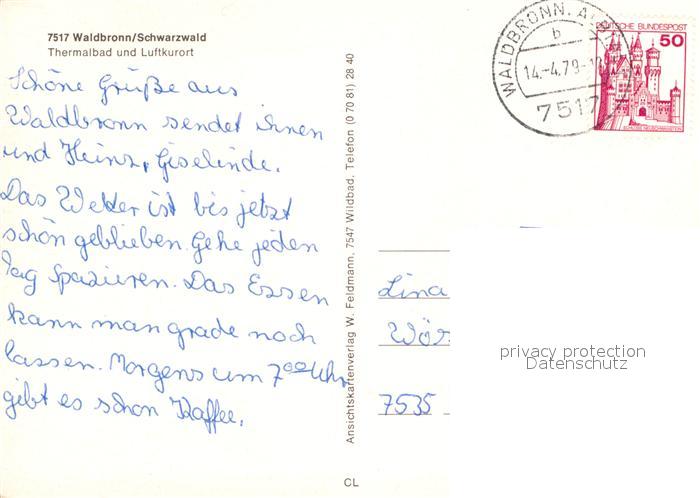 7517 Waldbronn/Schwarzwald
Thermalbad und Luftkurort
Schöne Grüße aus
Waldbronn sendet ihnen
und Heinz, Giselinde.
Das Wetter ist bis jetzt
schön geblieben. Gehe jeden
Tag spazieren. Das Essen
kann man grade noch
lassen. Morgens um 7 00 Uhr
gibt es schon Kaffee.
Ansichtskartenverlag W. Feldmann, 7547 Wildbad, Telefon (0 70 81) 28 40
CL
WALDBRONN, A
b
14.-4.79-1
7517
DEUTSCHE BUNDESPOST
50
SCHLOSS NEUSCHWANSTEIN
Lina
Wör
7535
privacy protection
Datenschutz